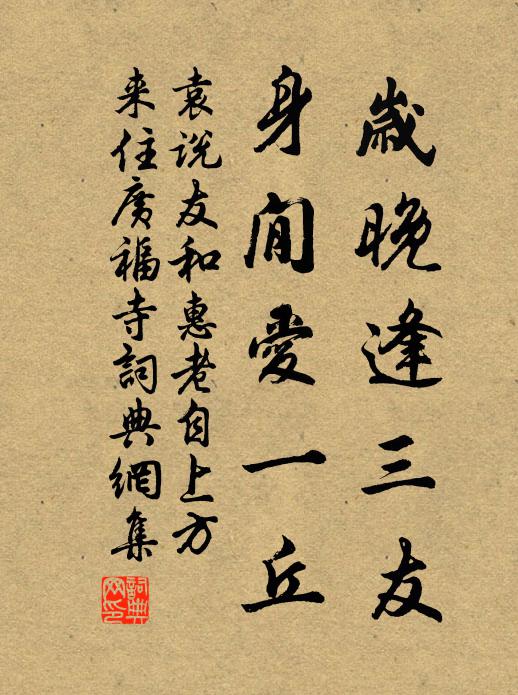 歲晚逢三友
身閒愛一丘
袁说友和惠老自上方
来住廣福寺詞典網集
詞典网印